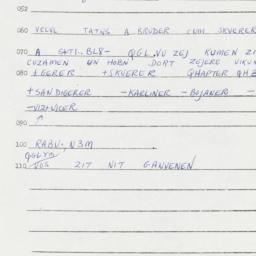 052
060 VELVL TATNS A BRUDER CUM SKVERER
070 A SHTI. BL8- QGL VU ZEJ KUMEN
CUZAMEN UN HOBN DORT ZEJERE
080 +GERER +SKVERER QHAPTER
+SANDIGERER -KARLINER -BOJANER -
-VIZHNICER
090
100 RABU., N3M
110 VOS ZIT NIT GANVENEN